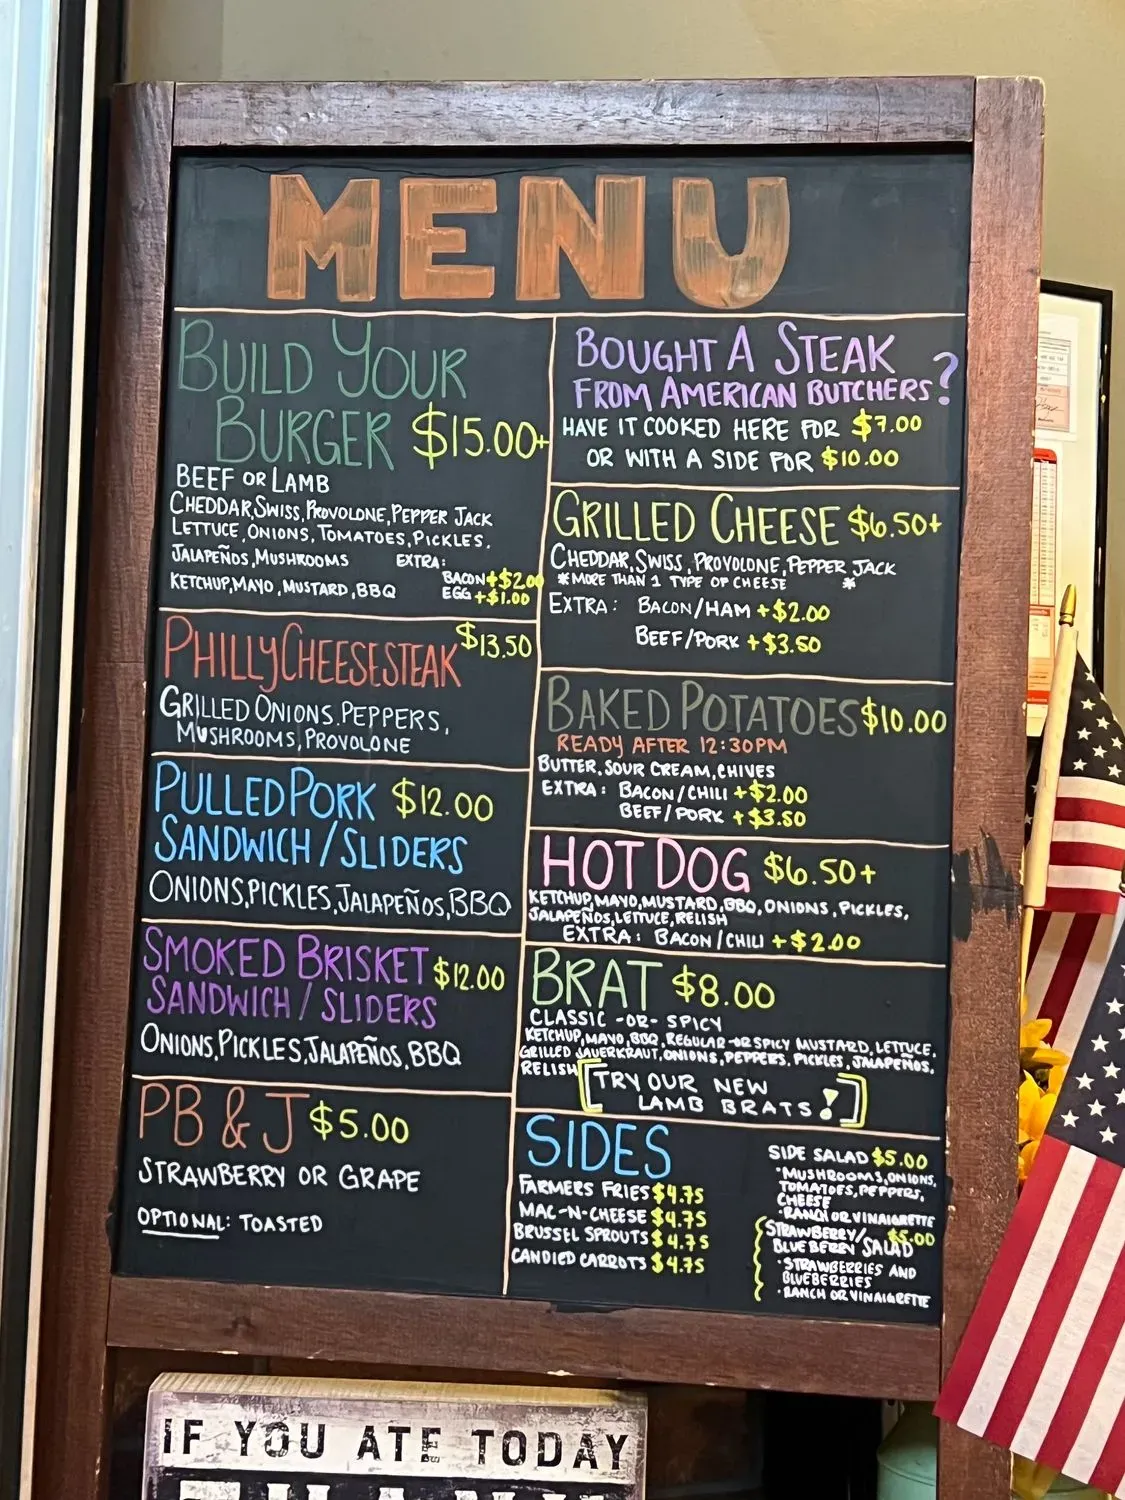 MENU
BUILD YOUR
BURGER $15.00+
BEEF OR LAMB
CHEDDAR, SWISS, PROVOLONE, PEPPER JACK
LETTUCE, ONIONS, TOMATOES, PICKLES,
JALAPEÑOS, MUSHROOMS
KETCHUP, MAYO, MUSTARD, BBQ
EXTRA:
BACON +$2.00
EGG +$1.00
PHILLY CHEESESTEAK $13.50
GRILLED ONIONS. PEPPERS,
MUSHROOMS, PROVOLONE
PULLED PORK $12.00
SANDWICH / SLIDERS
ONIONS, PICKLES, JALAPEÑOS, BBQ
SMOKED BRISKET $12.00
SANDWICH / SLIDERS
ONIONS, PICKLES, JALAPEÑOS, BBQ
PB & J $5.00
STRAWBERRY OR GRAPE
OPTIONAL: TOASTED
BOUGHT A STEAK
FROM AMERICAN BUTCHERS?
HAVE IT COOKED HERE FOR $7.00
OR WITH A SIDE FOR $10.00
GRILLED CHEESE $6.50+
CHEDDAR, SWISS, PROVOLONE, PEPPER JACK
*MORE THAN 1 TYPE OF CHEESE *
EXTRA: BACON/HAM +$2.00
BEEF/PORK +$3.50
BAKED POTATOES $10.00
READY AFTER 12:30PM
BUTTER, SOUR CREAM, CHIVES
EXTRA: BACON/CHILI +$2.00
BEEF/PORK +$3.50
HOT DOG $6.50+
KETCHUP, MAYO, MUSTARD, BBQ, ONIONS, PICKLES,
JALAPEÑOS, LETTUCE, RELISH
EXTRA: BACON/CHILI +$2.00
BRAT $8.00
CLASSIC -OR- SPICY
KETCHUP, MAYO, BBQ, REGULAR -OR SPICY MUSTARD, LETTUCE,
GRILLED SAUERKRAUT, ONIONS, PEPPERS, PICKLES, JALAPEÑOS,
RELISH
[TRY OUR NEW
LAMB BRATS!]
SIDES
FARMERS FRIES $4.75
MAC-N-CHEESE $4.75
BRUSSEL SPROUTS $4.75
CANDIED CARROTS $4.75
SIDE SALAD $5.00
•MUSHROOMS, ONIONS,
TOMATOES, PEPPERS,
CHEESE
•RANCH OR VINAIGRETTE
STRAWBERRY/ $5.00
BLUEBERRY SALAD
•STRAWBERRIES AND
BLUEBERRIES
•RANCH OR VINAIGRETTE
IF YOU ATE TODAY